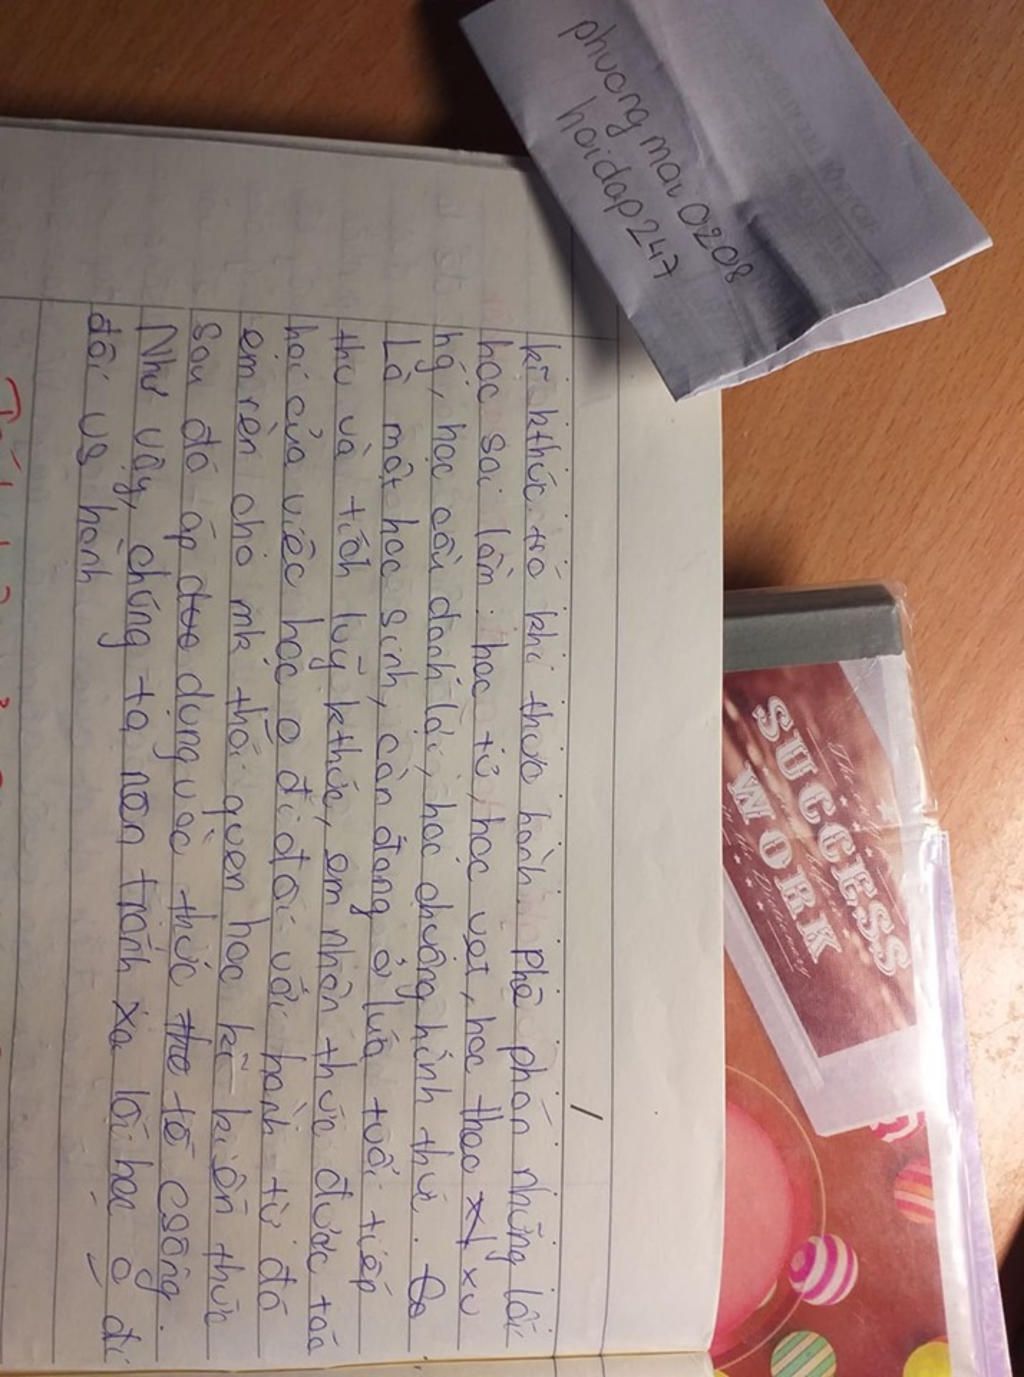 phuongmai0208
hoidap247
kĩ kthức trc khi thực hành. Phê phán những lối
học sai lầm: học tủ, học vẹt, học theo xu
hg', học cầu danh lợi, học chuộng hình thức.
Là một học sinh, còn đang ở lứa tuổi tiếp
thu và tích luỹ kthức, em nhận thức được tác
hại của việc học o đi đôi với hành từ đó
em rèn cho mk thói quen học kĩ kiến thức
sau đó áp dụng vào thực tế csống.
Như vậy, chúng ta nên tránh xa lối học o đi
đôi vs hành
SUCCESS
WORK